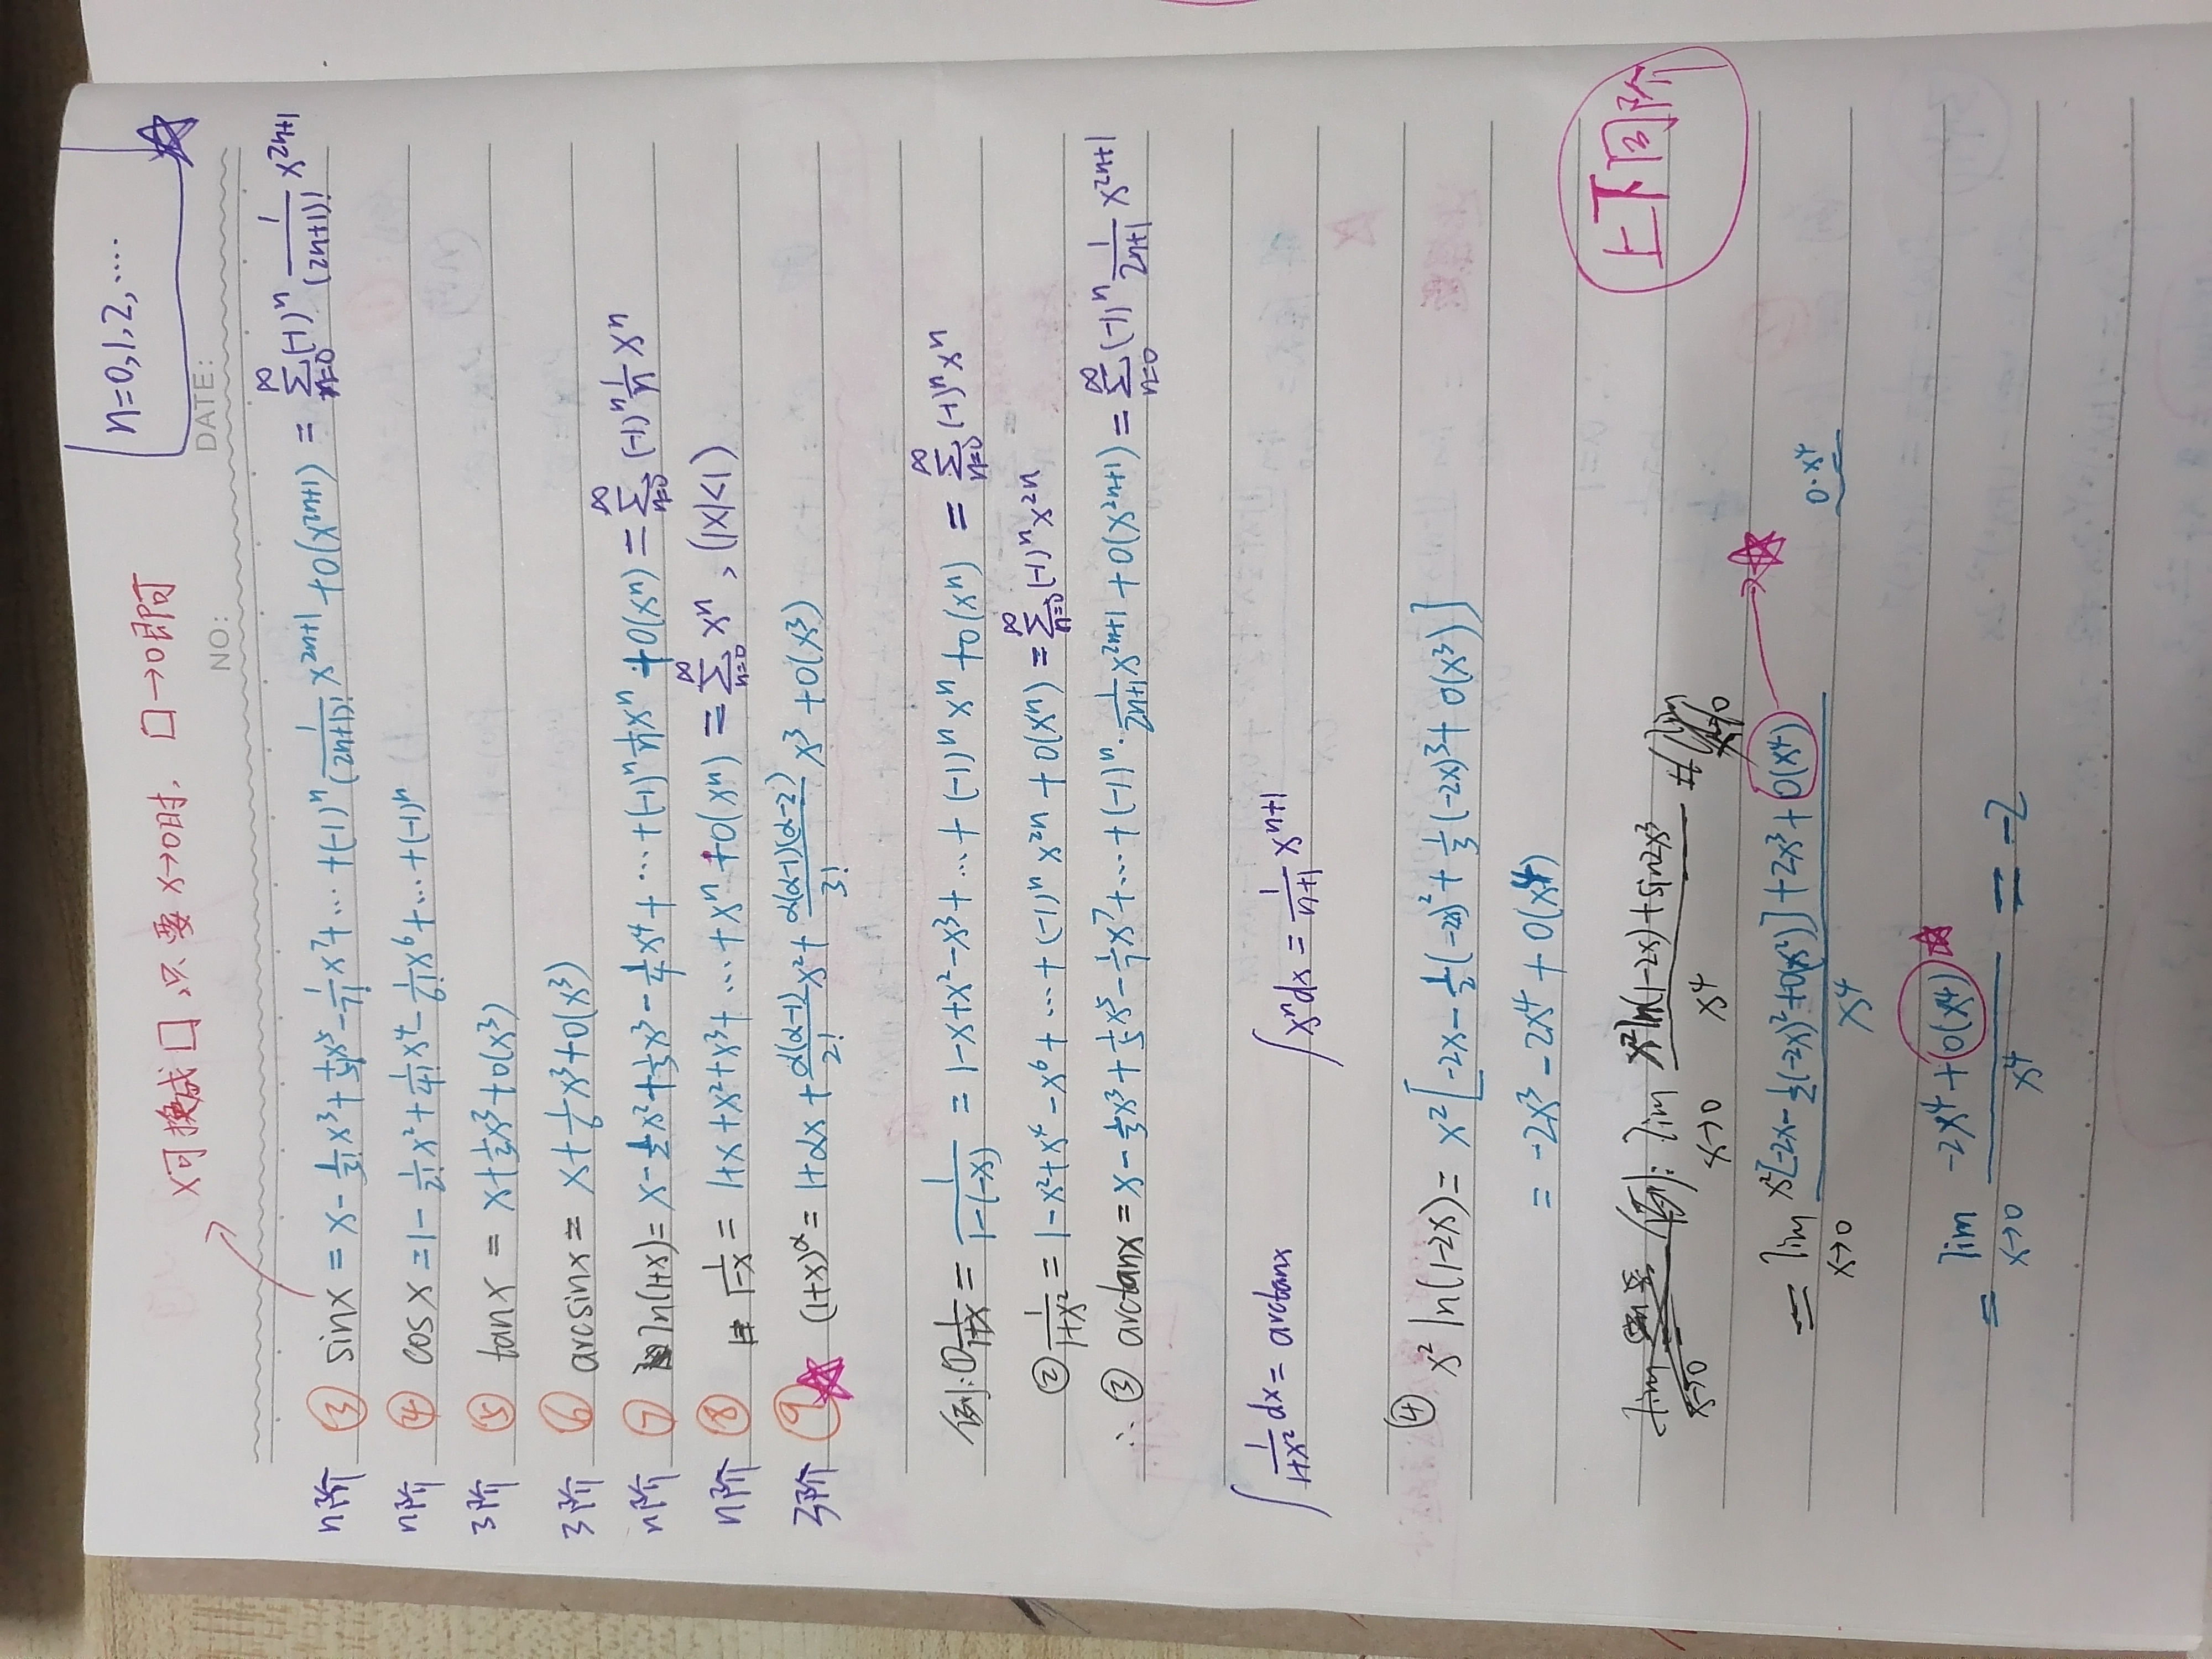 x可换成□,只要x→0时,□→0即可
n=0,1,2,….
NO:
DATE:
n阶 ③ sinx = x - 1/3! x³ + 1/5! x⁵ - 1/7! x⁷ + … + (-1)ⁿ 1/(2n+1)! x²ⁿ⁺¹ + o(x²ⁿ⁺¹) = ∑_{n=0}^∞ (-1)ⁿ 1/(2n+1)! x²ⁿ⁺¹
n阶 ④ cosx = 1 - 1/2! x² + 1/4! x⁴ - 1/6! x⁶ + … + (-1)ⁿ
3阶 ⑤ tanx = x + 1/3 x³ + o(x³)
3阶 ⑥ arcsinx = x + 1/6 x³ + o(x³)
n阶 ⑦ ln(1+x) = x - 1/2 x² + 1/3 x³ - 1/4 x⁴ + … + (-1)ⁿ 1/n xⁿ + o(xⁿ) = ∑_{n=0}^∞ (-1)ⁿ 1/n xⁿ
n阶 ⑧ 1/(1-x) = 1+x+x²+x³+ … + xⁿ + o(xⁿ) = ∑_{n=0}^∞ xⁿ , (|x|<1)
3阶 ⑨ (1+x)^α = 1+αx + α(α-1)/2! x² + α(α-1)(α-2)/3! x³ + o(x³)
例: ① 1/(1+x) = 1/(1-(-x)) = 1-x+x²-x³+ … + (-1)ⁿ xⁿ + o(xⁿ) = ∑_{n=0}^∞ (-1)ⁿ xⁿ
② 1/(1+x²) = 1-x²+x⁴-x⁶+ … + (-1)ⁿ x²ⁿ + o(xⁿ) = ∑_{n=0}^∞ (-1)ⁿ x²ⁿ
∴ ③ arctanx = x - 1/3 x³ + 1/5 x⁵ - 1/7 x⁷ + … + (-1)ⁿ · 1/(2n+1) x²ⁿ⁺¹ + o(x²ⁿ⁺¹) = ∑_{n=0}^∞ (-1)ⁿ 1/(2n+1) x²ⁿ⁺¹
∫ 1/(1+x²) dx = arctanx ∫ xⁿdx = 1/(n+1) xⁿ⁺¹
④ x² ln(1-2x) = x² [-2x - 1/2 (-2x)² + 1/3 (-2x)³ + o(x³)]
= -2x³ - 2x⁴ + o(x⁴)
上下同阶
例: lim_{x→0} (x²ln(1-2x)+sin2x³)/x⁴
= lim_{x→0} (x²[-2x - 1/2(-2x)² + o(x²)] + 2x³ + o(x⁴))/x⁴ → 0·x⁴
= lim_{x→0} (-2x⁴ + o(x⁴))/x⁴ = -2